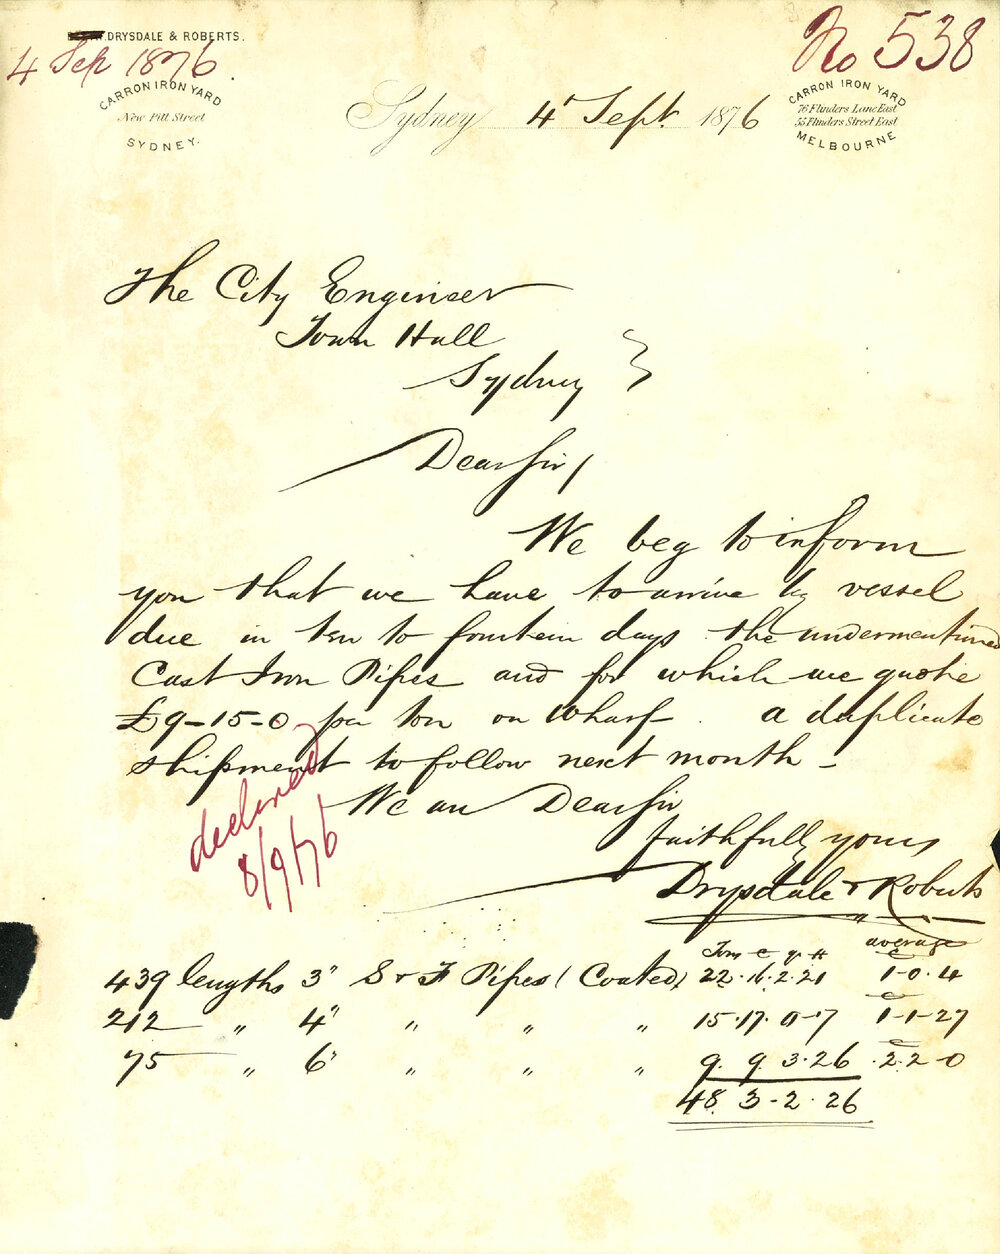 DRYSDALE & ROBERTS.
4 Sep 1876.
No 538
CARRON IRON YARD
New Pitt Street
SYDNEY.
CARRON IRON YARD
76 Flinders Lane East
55 Flinders Street East
MELBOURNE
Sydney 4 Sept. 1876
The City Engineer
Town Hall
Sydney
Dear Sir/
We beg to inform
you that we have to arrive by vessel
due in ten to fourteen days the undermentioned
Cast Iron Pipes and for which we quote
£9-15-0 per ton on Wharf. a duplicate
shipment to follow next month -
declined
8/9/76
We are Dear Sir
faithfully yours
Drysdale & Roberts
Tons c q ℔ average
439 lengths 3" S & F Pipes (Coated) 22.16.2.21 1-0.4
212 " 4" " " " 15.17.0-7 1-1-27
75 " 6" " " " 9. 9 3.26 .2.2-0
48 3-2.26